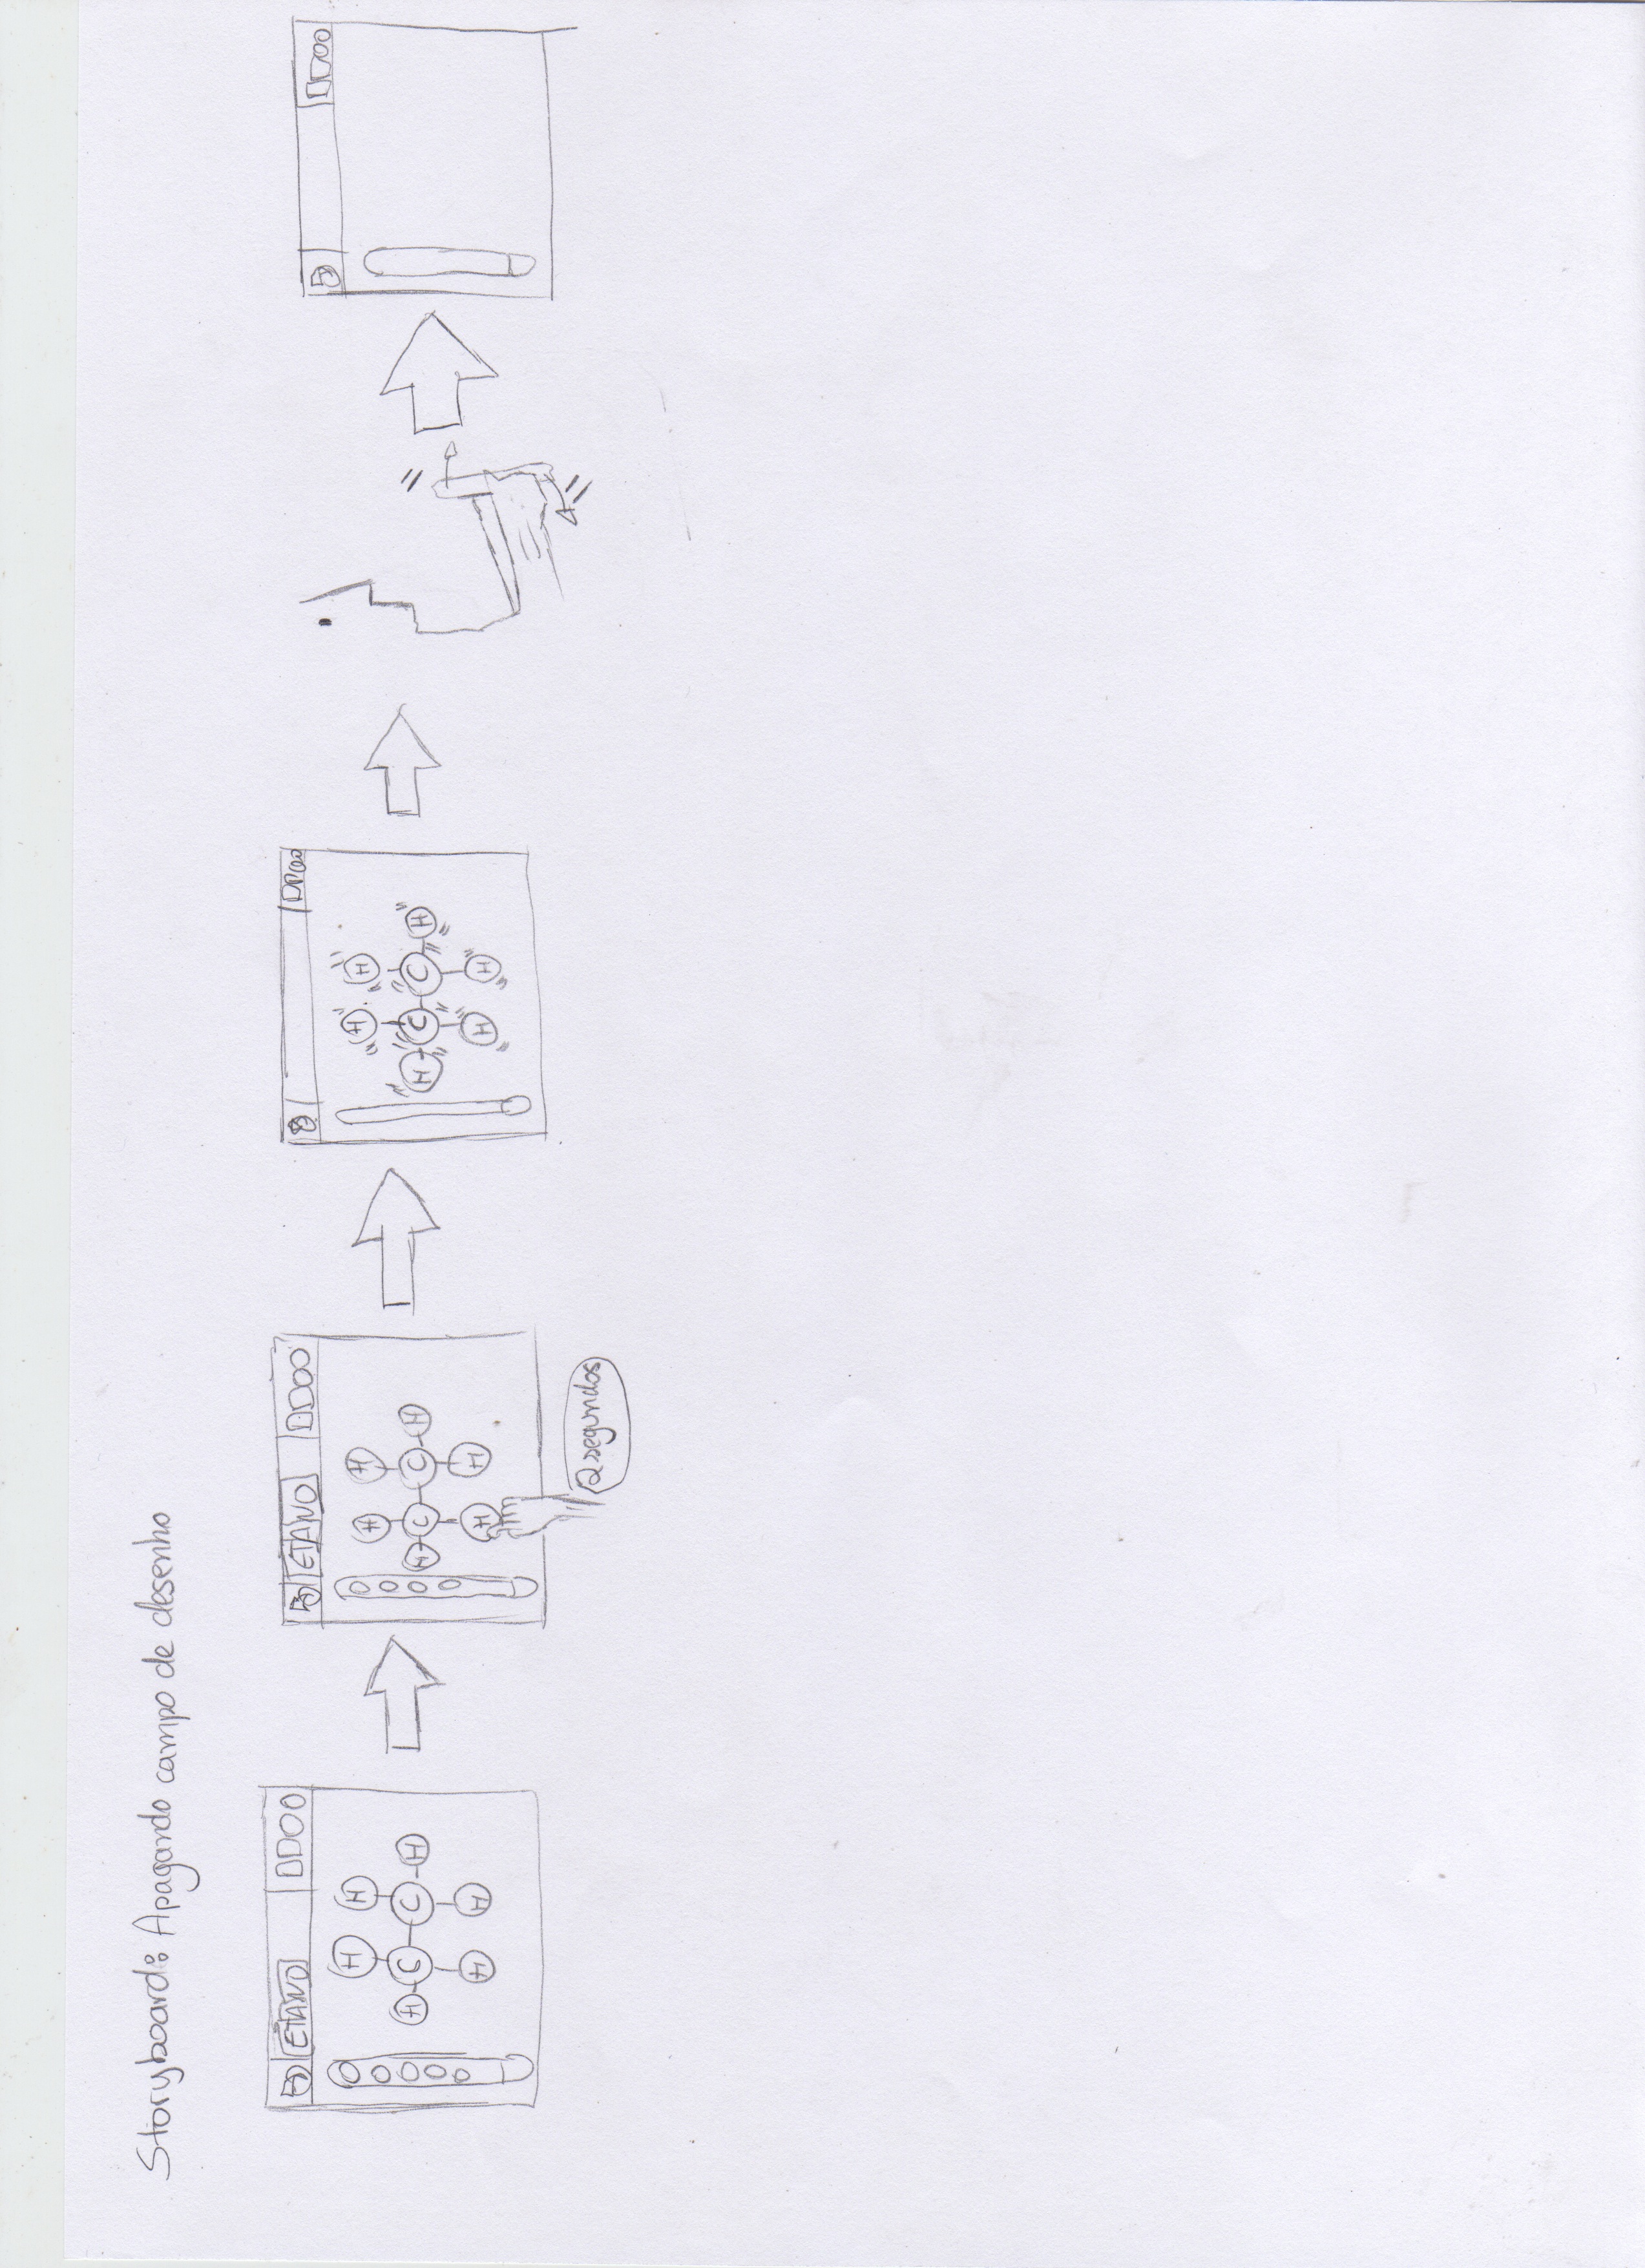 Storyboard: Apagando campo de desenho
ETANO
H H
H C C H
H H
ETANO
H H
H C C H
H H
2 segundos
H H
H C C H
H H